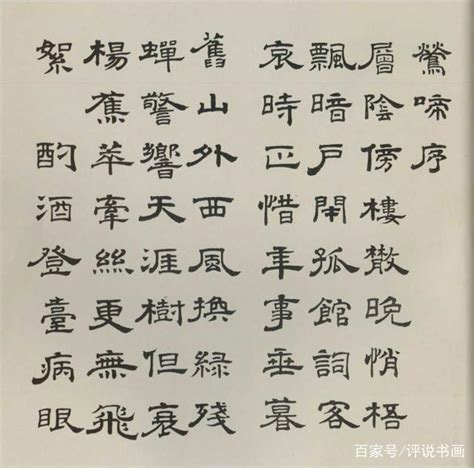 鶯啼序
層陰傍樓散晚悄梧
飄暗戶閉孤館詞客
哀時正惜年事垂暮
舊山外西風換綠殘
蟬警響天涯樹但衰
楊蕉萃牽絲更無飛
絮 酌酒登臺病眼
百家号/评说书画